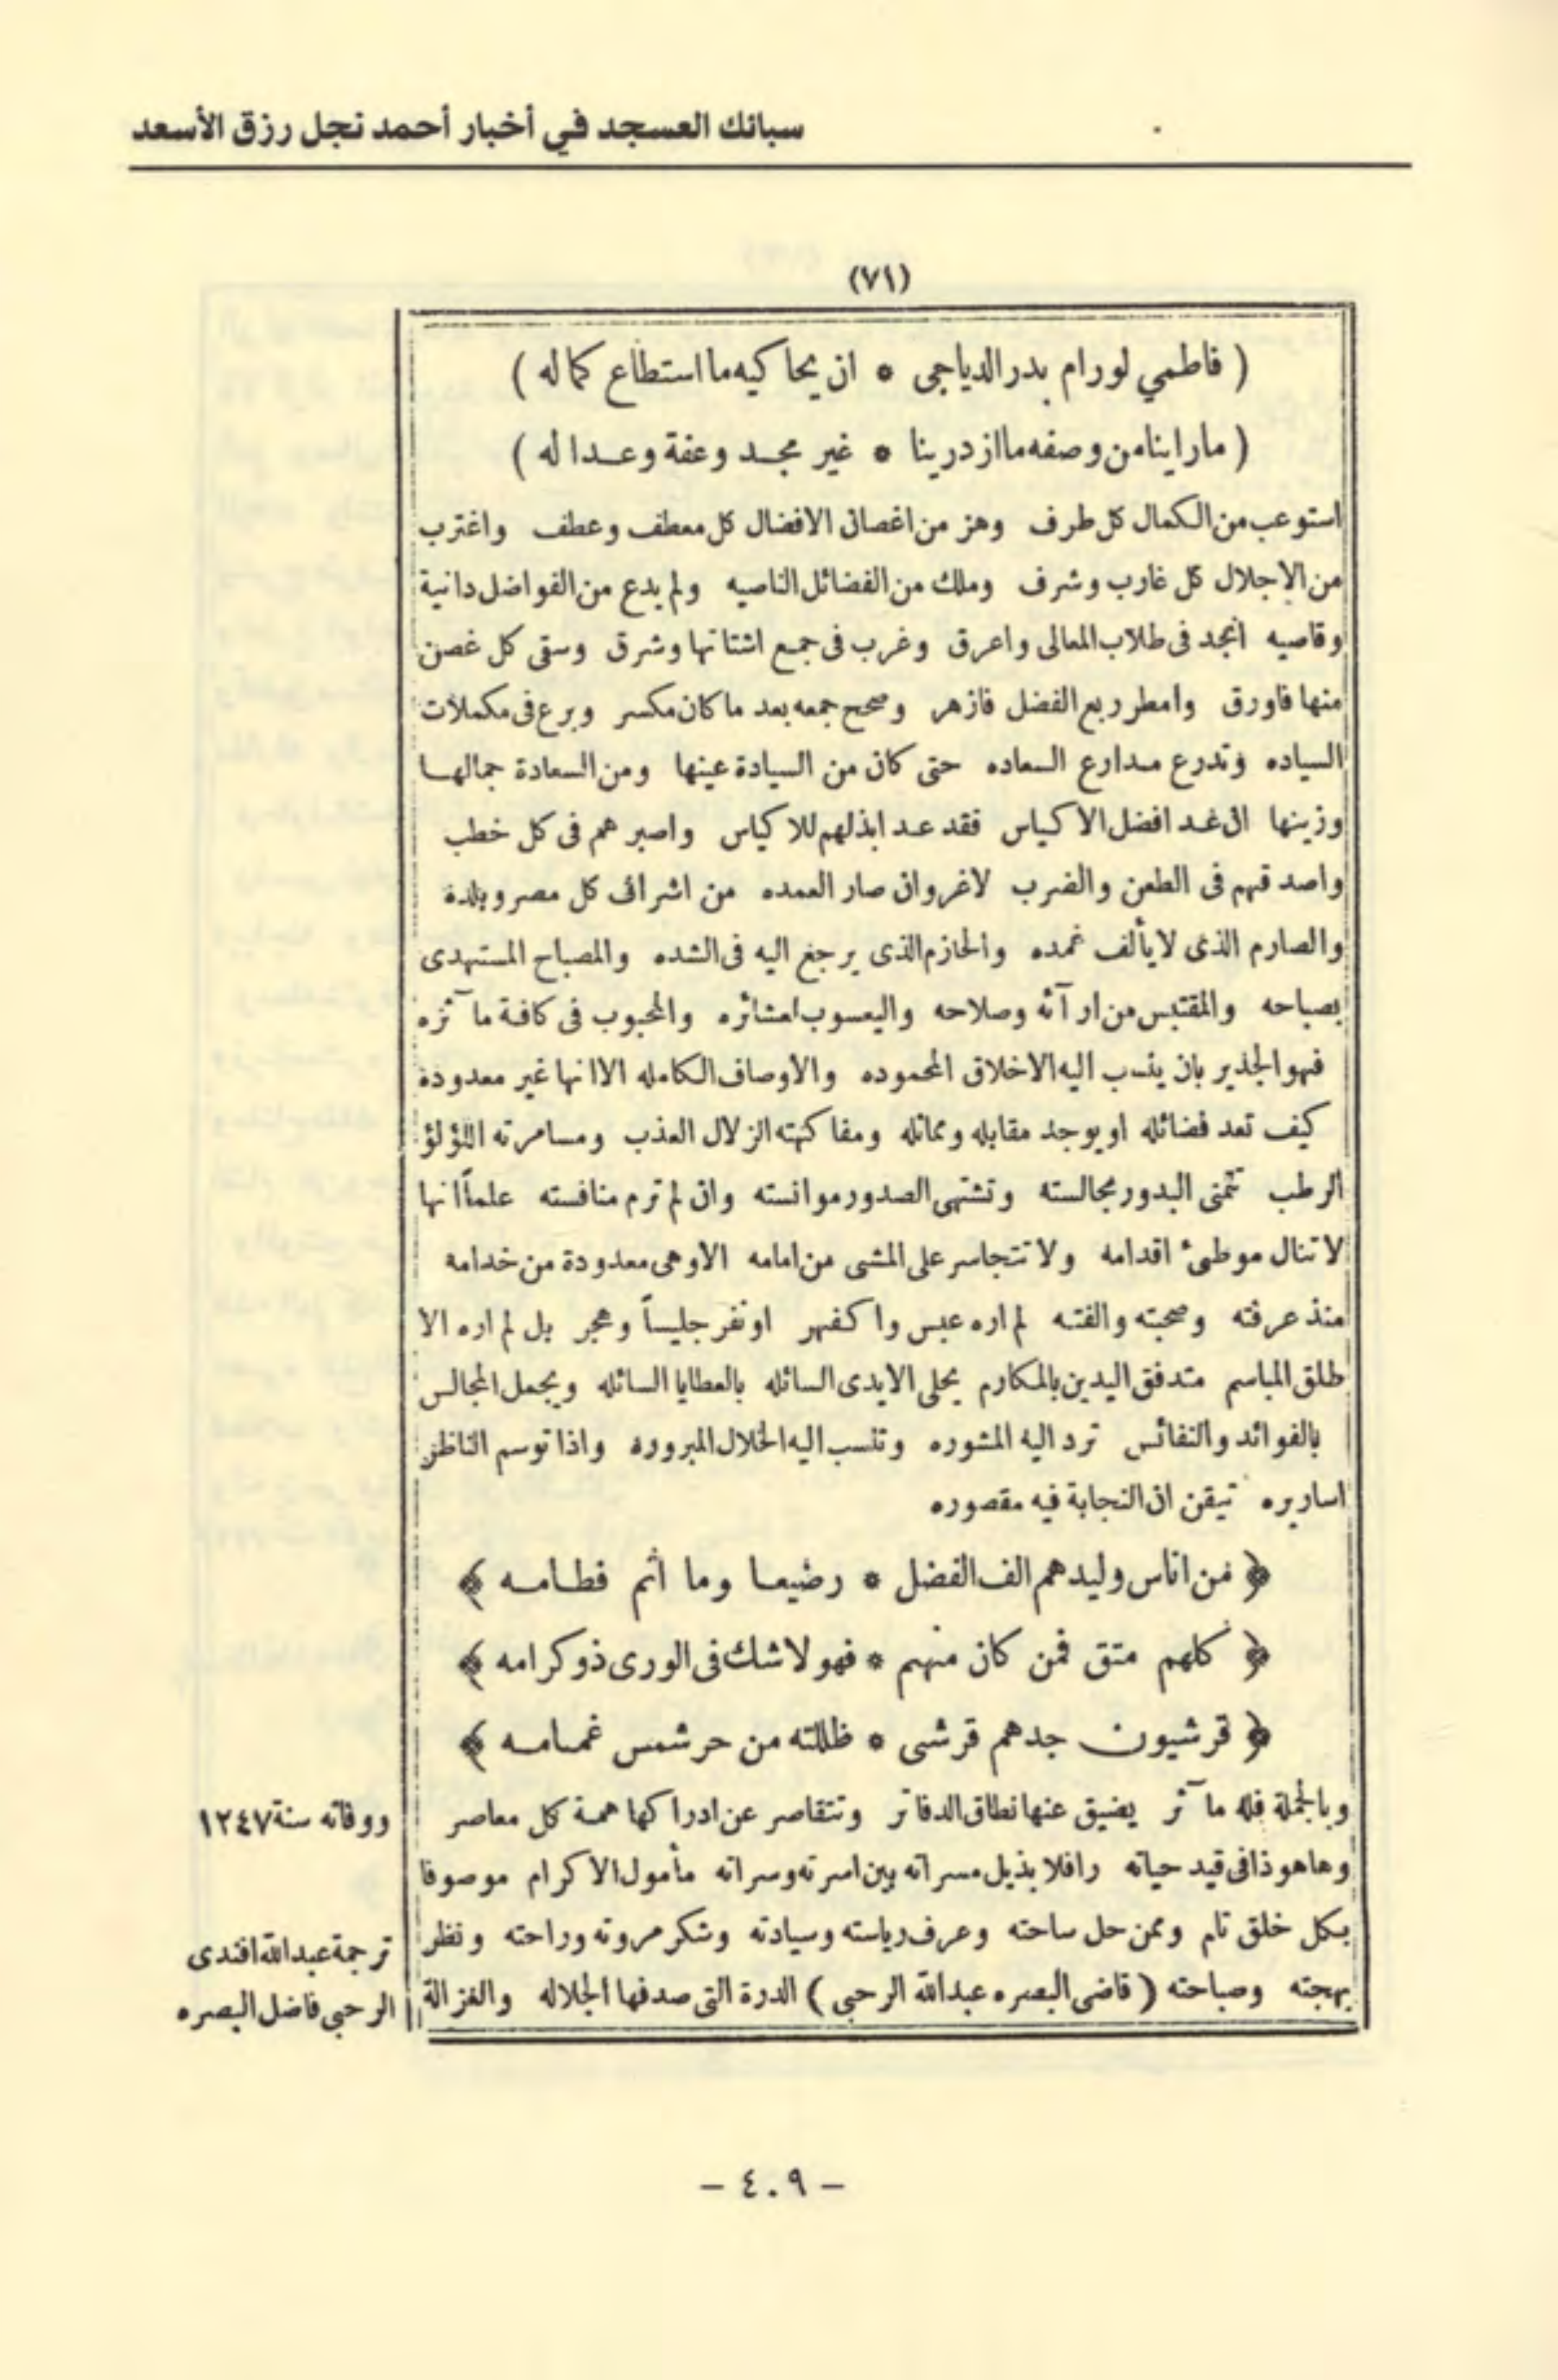 سبائك العسجد في أخبار أحمد نجل رزق الأسعد
(٧١)
( فاطمي لورام بدر الدياجى * ان يحاكيه ما استطاع كماله )
( ماراينا من وصفه ما ازدرينا * غير مجد وعفة وعداله )
استوعب من الكمال كل طرف وهز من اغصان الافضال كل معطف وعطف واغترب
من الاجلال كل غارب وشرف وملك من الفضائل الناصيه ولم يدع من الفواضل دانية
وقاصيه انجد فى طلاب المعالى واعرق وغرب فى جمع اشتاتها وشرق وسقى كل غصن
منها فاورق وامطر ربع الفضل فازهر وصحح جمعه بعد ما كان مكسر وبرع فى مكملات
السياده وتدرع مدارع السعاده حتى كان من السيادة عينها ومن السعادة جمالها
وزينها ان غد افضل الاكياس فقد عد ابذلهم للاكياس واصبرهم فى كل خطب
واصدقهم فى الطعن والضرب لاغروان صار العمده من اشراف كل مصر وبلدة
والصارم الذى لا يألف غمده والحازم الذى يرجع اليه فى الشده والمصباح المستهدى
بصباحه والمقتبس من ارآئه وصلاحه واليعسوب لعشائره والمحبوب فى كافة مآثره
فهو الجذير بان ينسب اليه الاخلاق المحموده والاوصاف الكامله الا انها غير معدودة
كيف تعد فضائله او يوجد مقابله ومماثله ومفاكهته الزلال العذب ومسامرته اللؤلؤ
الرطب تتمنى البدور مجالسته وتشتهى الصدور موانسته وان لم ترم منافسته علماً انها
لا تنال موطئ اقدامه ولا تتجاسر على المشى من امامه الا وهى معدودة من خدامه
منذ عرفته وصحبته والفته لم اره عبس واكفهر او نفر جليساً وهجر بل لم اره الا
طلق المباسم متدفق اليدين بالمكارم يحلى الايدى السائله بالعطايا السائله ويجمل المجالس
بالفوائد والنفائس ترد اليه المشوره وتنسب اليه الخلال المبروره واذا توسم الناظر
اساريره تيقن ان النجابة فيه مقصوره
﴿ من اناس وليدهم الف الفضل * رضيعا وما اتم فطامه ﴾
﴿ كلهم متق فمن كان منهم * فهو لا شك فى الورى ذو كرامه ﴾
﴿ قرشيون جدهم قرشى * ظللته من حر شمس غمامه ﴾
وبالجملة فله مآثر يضيق عنها نطاق الدفاتر وتتقاصر عن ادراكها همة كل معاصر
وها هوذا فى قيد حياته رافلا بذيل مسراته بين اسرته وسراته مأمول الاكرام موصوفا
بكل خلق تام وممن حل ساحته وعرف رياسته وسيادته وشكر مروته وراحته ونظر
بهجته وصباحته ( قاضى البصره عبدالله الرحبى ) الدرة التى صدفها الجلاله والغزالة
ووفاته سنة ١٢٤٧
ترجمة عبدالله افندى
الرحبى فاضل البصره
- ٤٠٩ -